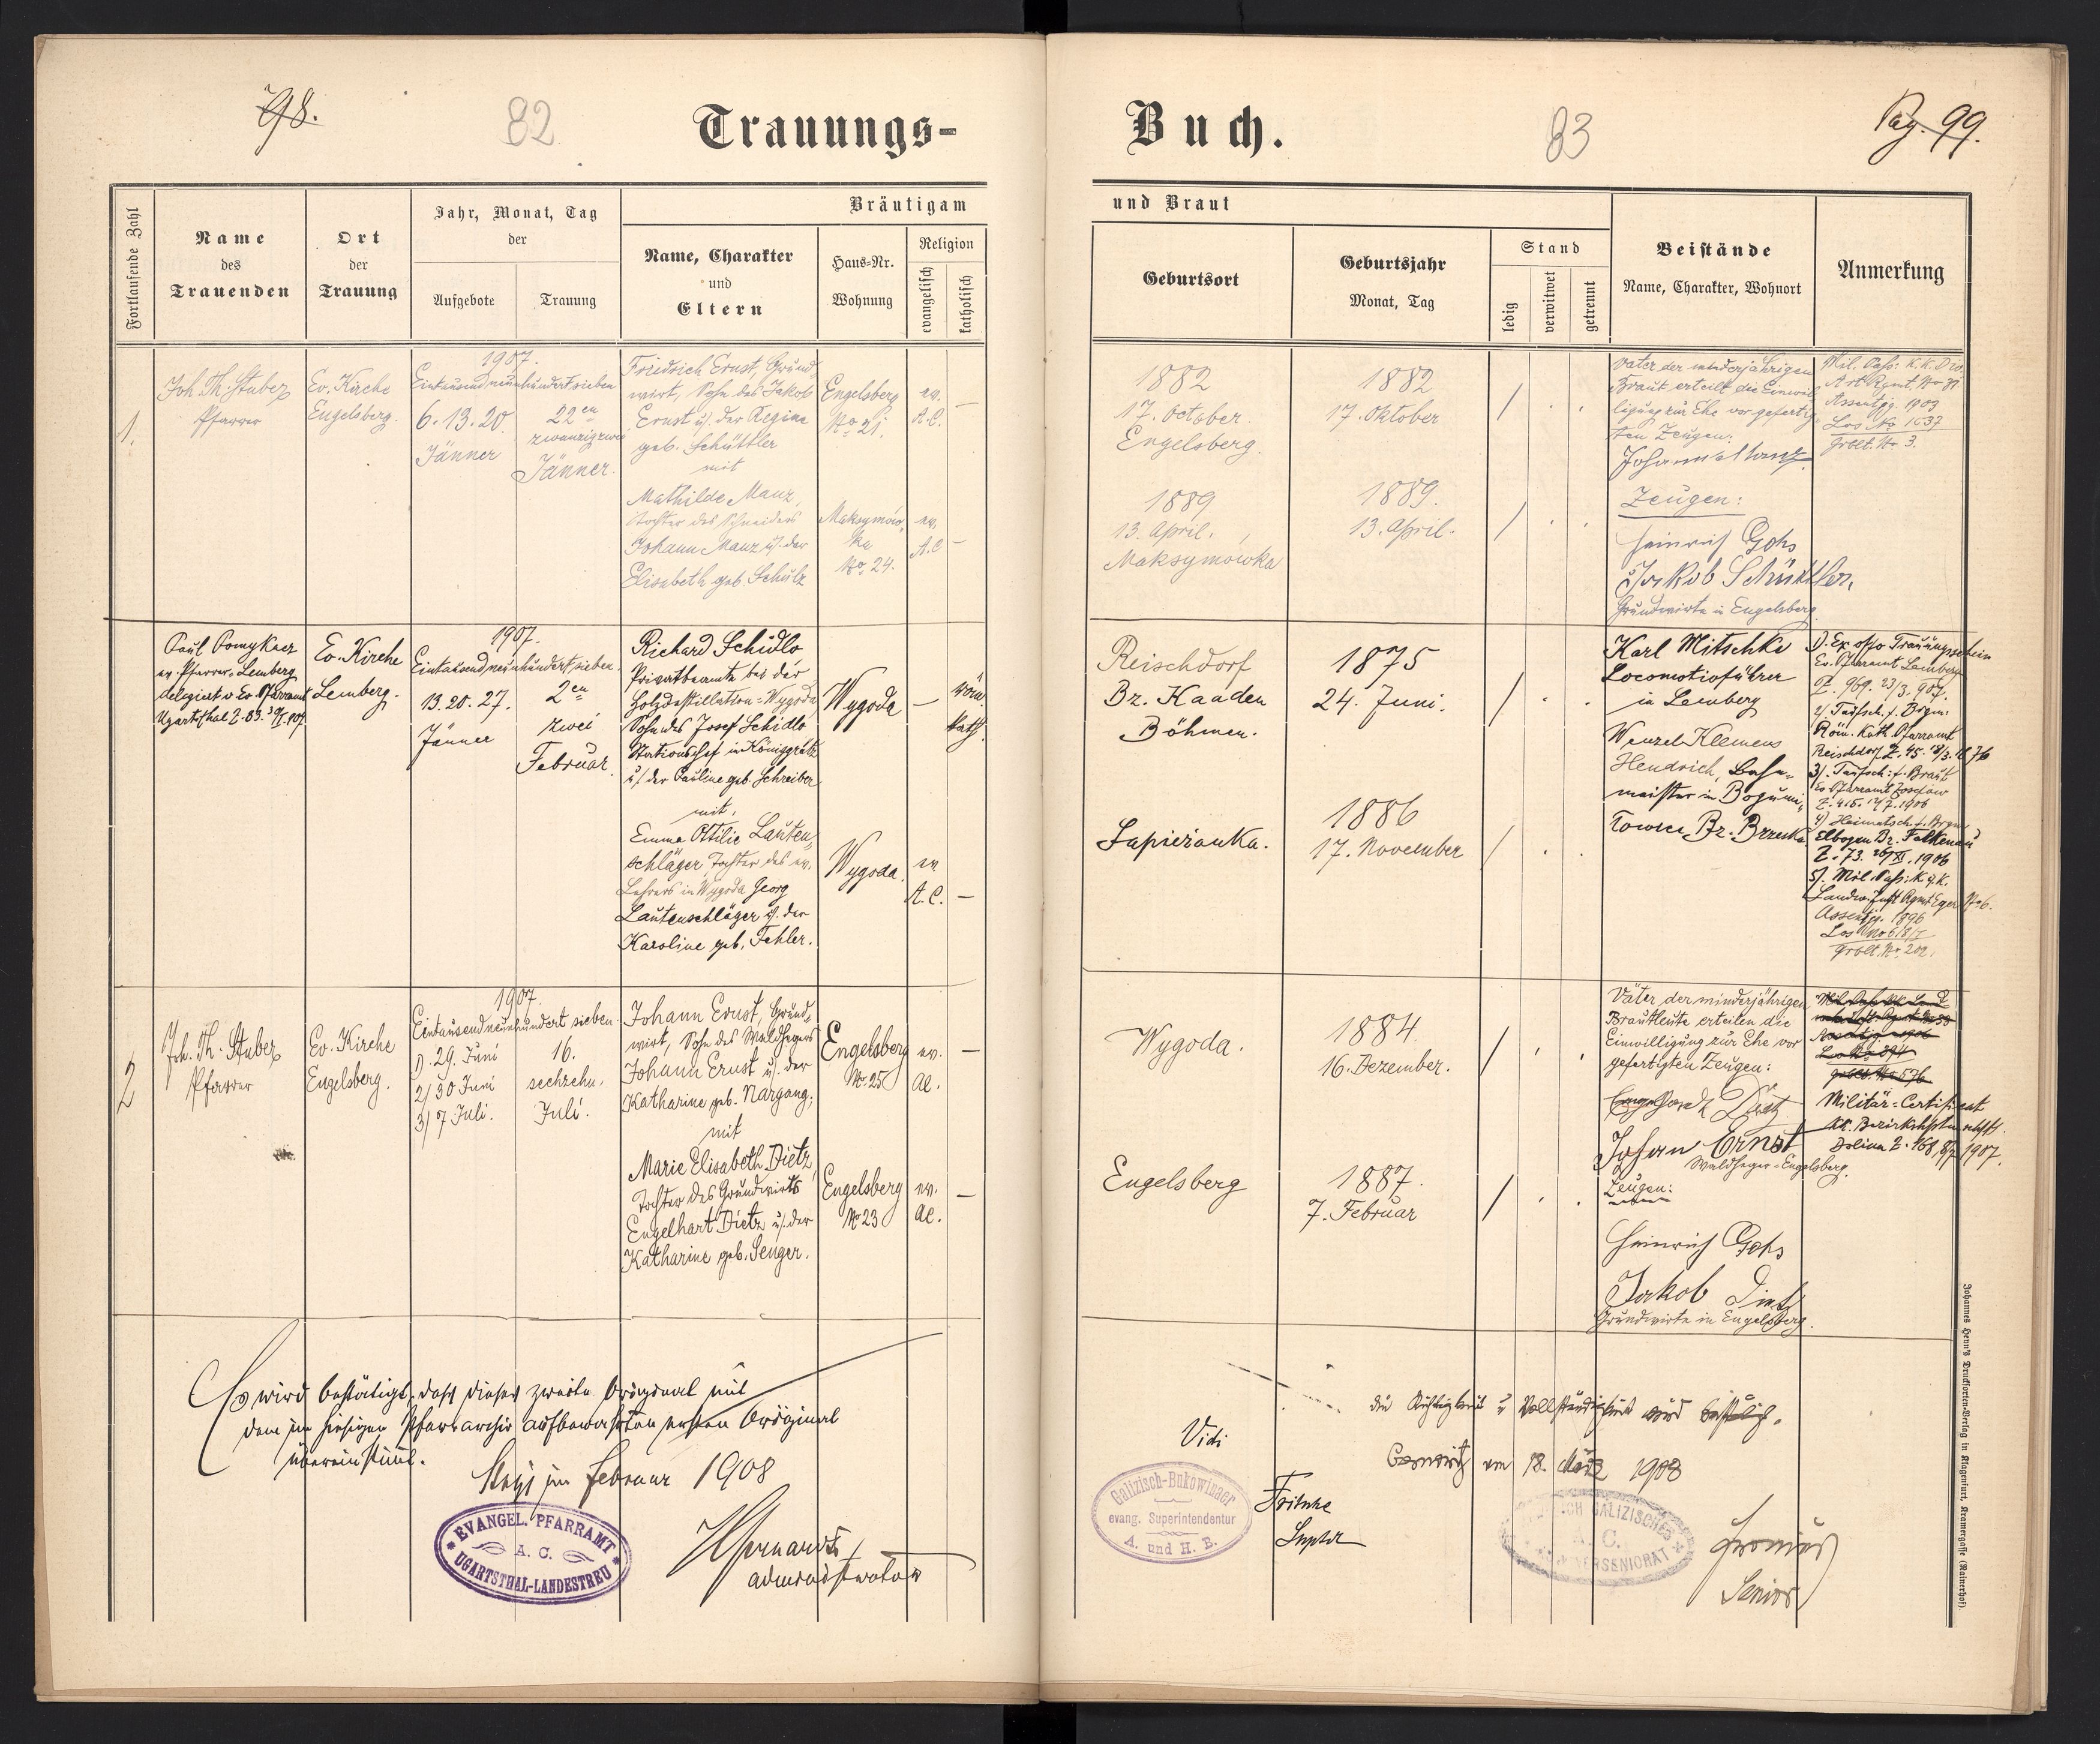 98.
82
Trauungs-
Fortlaufende Zahl
Name
des
Trauenden
Ort
der
Trauung
Jahr, Monat, Tag
der
Aufgebote
Trauung
Bräutigam
Name, Charakter
und
Eltern
Haus-Nr.
Wohnung
Religion
evangelisch
katholisch
1.
Joh. Th. Stuber
Pfarrer
Ev. Kirche
Engelsberg.
1907.
Eintausendneunhundertsieben
6. 13. 20.
Jänner
22en
Jänner.
Friedrich Ernst, Grund
wirt, Sohn des Jakob
Ernst u/. der Regine
geb. Schüttler
mit
Mathilde Manz,
Tochter des Schneiders
Johann Manz u/. der
Elisabeth geb. Schulz
Engelsberg
No 21.
ev.
A.C.
—
Maksymów
ka
No. 24.
ev.
A.C
—
ev. Pfarrer Lemberg
delegiert v. Ev. Pfarramt
Ev. Kirche
Lemberg.
1907.
Eintausendneunhundertsieben.
13. 20. 27.
Jänner
2en
zwei
Februar.
Richard Schidlo
Privatbeamte bei der
Holzdestillation-Wygoda
Sohn des Josef Schidlo
Stationschef in Königgrätz
u/. der Pauline geb. Schreiber
mit
Emma Ottilie Lauten-
schläger, Tochter des ev.
Lehrers in Wygoda Georg
Lautenschläger u/. der
Karoline geb. Fehler.
Wygoda
—
röm.
kath.
Wygoda.
ev.
A.C.
—
2
Joh. Th. Stuber
Pfarrer
Ev. Kirche
Engelsberg.
1907.
Eintausendneunhundert sieben.
1). 29. Juni
2/ 30 Juni
3/ 7 Juli.
16.
sechzehn.
Juli.
Johann Ernst, Grund-
wirt, Sohn des Waldhegers
Johann Ernst u/. der
Katharine geb. Nargang;
mit
Marie Elisabeth Dietz
Tochter des Grundwirts
Engelhart Dietz u/. der
Katharine geb. Senger.
Engelsberg
No. 25
ev.
ac.
—
Engelsberg
No 23
ev.
ac.
—
Es wird bestätigt, dass dieses zweite Original mit
dem im hiesigen Pfarrarchiv aufbewahrten ersten Original
übereinstimmt.
Stryj im Februar 1908
EVANGEL. PFARRAMT
A. C.
UGARTSTHAL-LANDESTREU
Administrator
Buch.
83
Pag. 99.
und Braut
Geburtsort
Geburtsjahr
Monat, Tag
Stand
ledig
verwitwet
getrennt
Beistände
Name, Charakter, Wohnort
Anmerkung
1882
17. October.
Engelsberg.
1882
17. Oktober
/
1889
13. April.
Maksymówka
1889.
13. April.
/
Vater der minderjährigen
Braut erteilt die Einwil
ligung zur Ehe vor gefertig
ten Zeugen:
Johann Manz
Zeugen:
Heinrich Gohs
Jakob Schüttler,
Grundwirte in Engelsberg
Assentjg. 1903
Los No 1637
Grdbt. No 3.
Reischdorf
Bz. Kaaden
Böhmen.
1875
24. Juni.
/
Lapieżanka.
1886
17. November
/
Karl Mitschke
Locomotivführer
in Lemberg
Wenzel Klemens
Hendrich, Bahn-
meister in Bogumi-
Towice, Bz. Brzesko
1). Ex offo Trauungsschein
Ev. Pfarramt Lemberg
Z. 969. 23/3. 907.
2/ Taufsch. f. Brgm:
Röm. Kath. Pfarramt
3/. Taufsch: f. Braut
4) Heimatsch. f. Brgm
Elbogen Bz. Falkenau
5/. Mil. Pass: K. u. K.
Assentjg. 1896
Grdbt. No. 202.
Wygoda.
1884.
16. Dezember.
/
Engelsberg
1887.
7. Februar
/
Väter der minderjährigen
Brautleute erteilen die
Einwilligung zur Ehe vor
gefertigten Zeugen:
Johan Ernst
Waldheger-Engelsberg.
Zeugen:
Heinrich Gohs
Jakob Dietz
Grundwirte in Engelsberg.
Militär-Certificat
Dolina Z. 168, 8/7 1907.
Vidi
Galizisch-Bukowinaer
evang. Superintendentur
A. und H. B.
Fritsche
Suptdt
die Richtigkeit u Vollständigkeit wird bestätigt.
Czernowitz am 18. März 1908
GALIZISCHES
A. C.
SENIORAT
Fronius
Senior
Johannes Heyn's Drucksorten-Verlag in Klagenfurt, Kramergasse (Rainerhof).